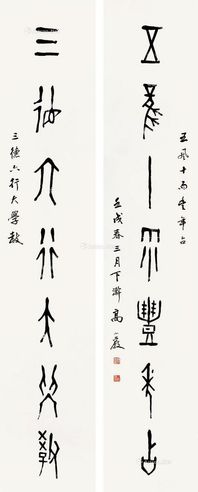 五風十雨豐年占
五風十雨豐年占
壬戌春三月下澣高
三德六行大學教
三德六行大學教